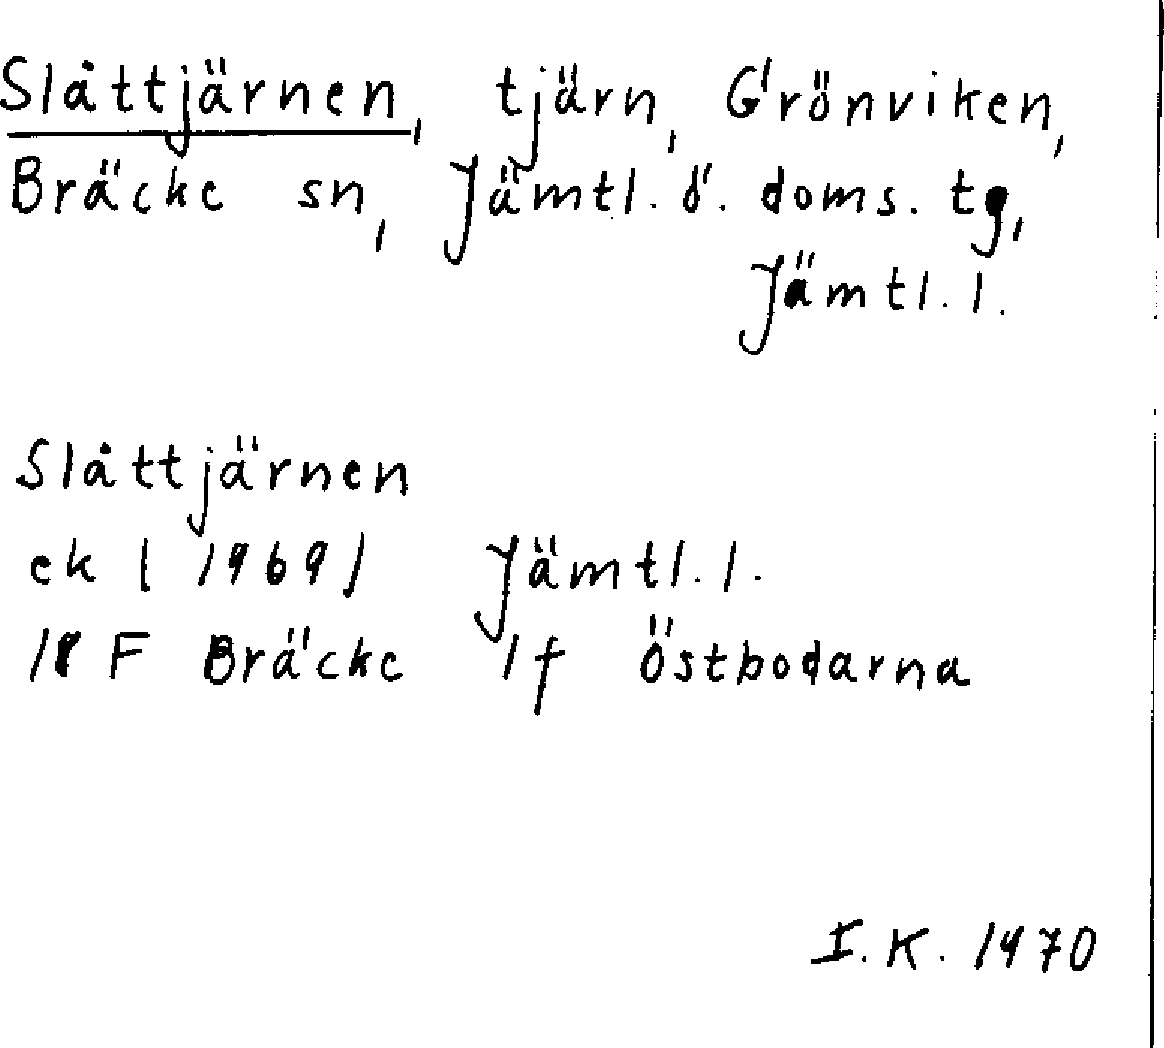 Slåttjärnen, tjärn, Grönviken,
Bräcke sn, Jämtl. ö. doms. tg,
Jämtl. l.
Slåttjärnen
ek (1969) Jämtl. l.
18 F Bräcke 1f Östbodarna
I. K. 1970